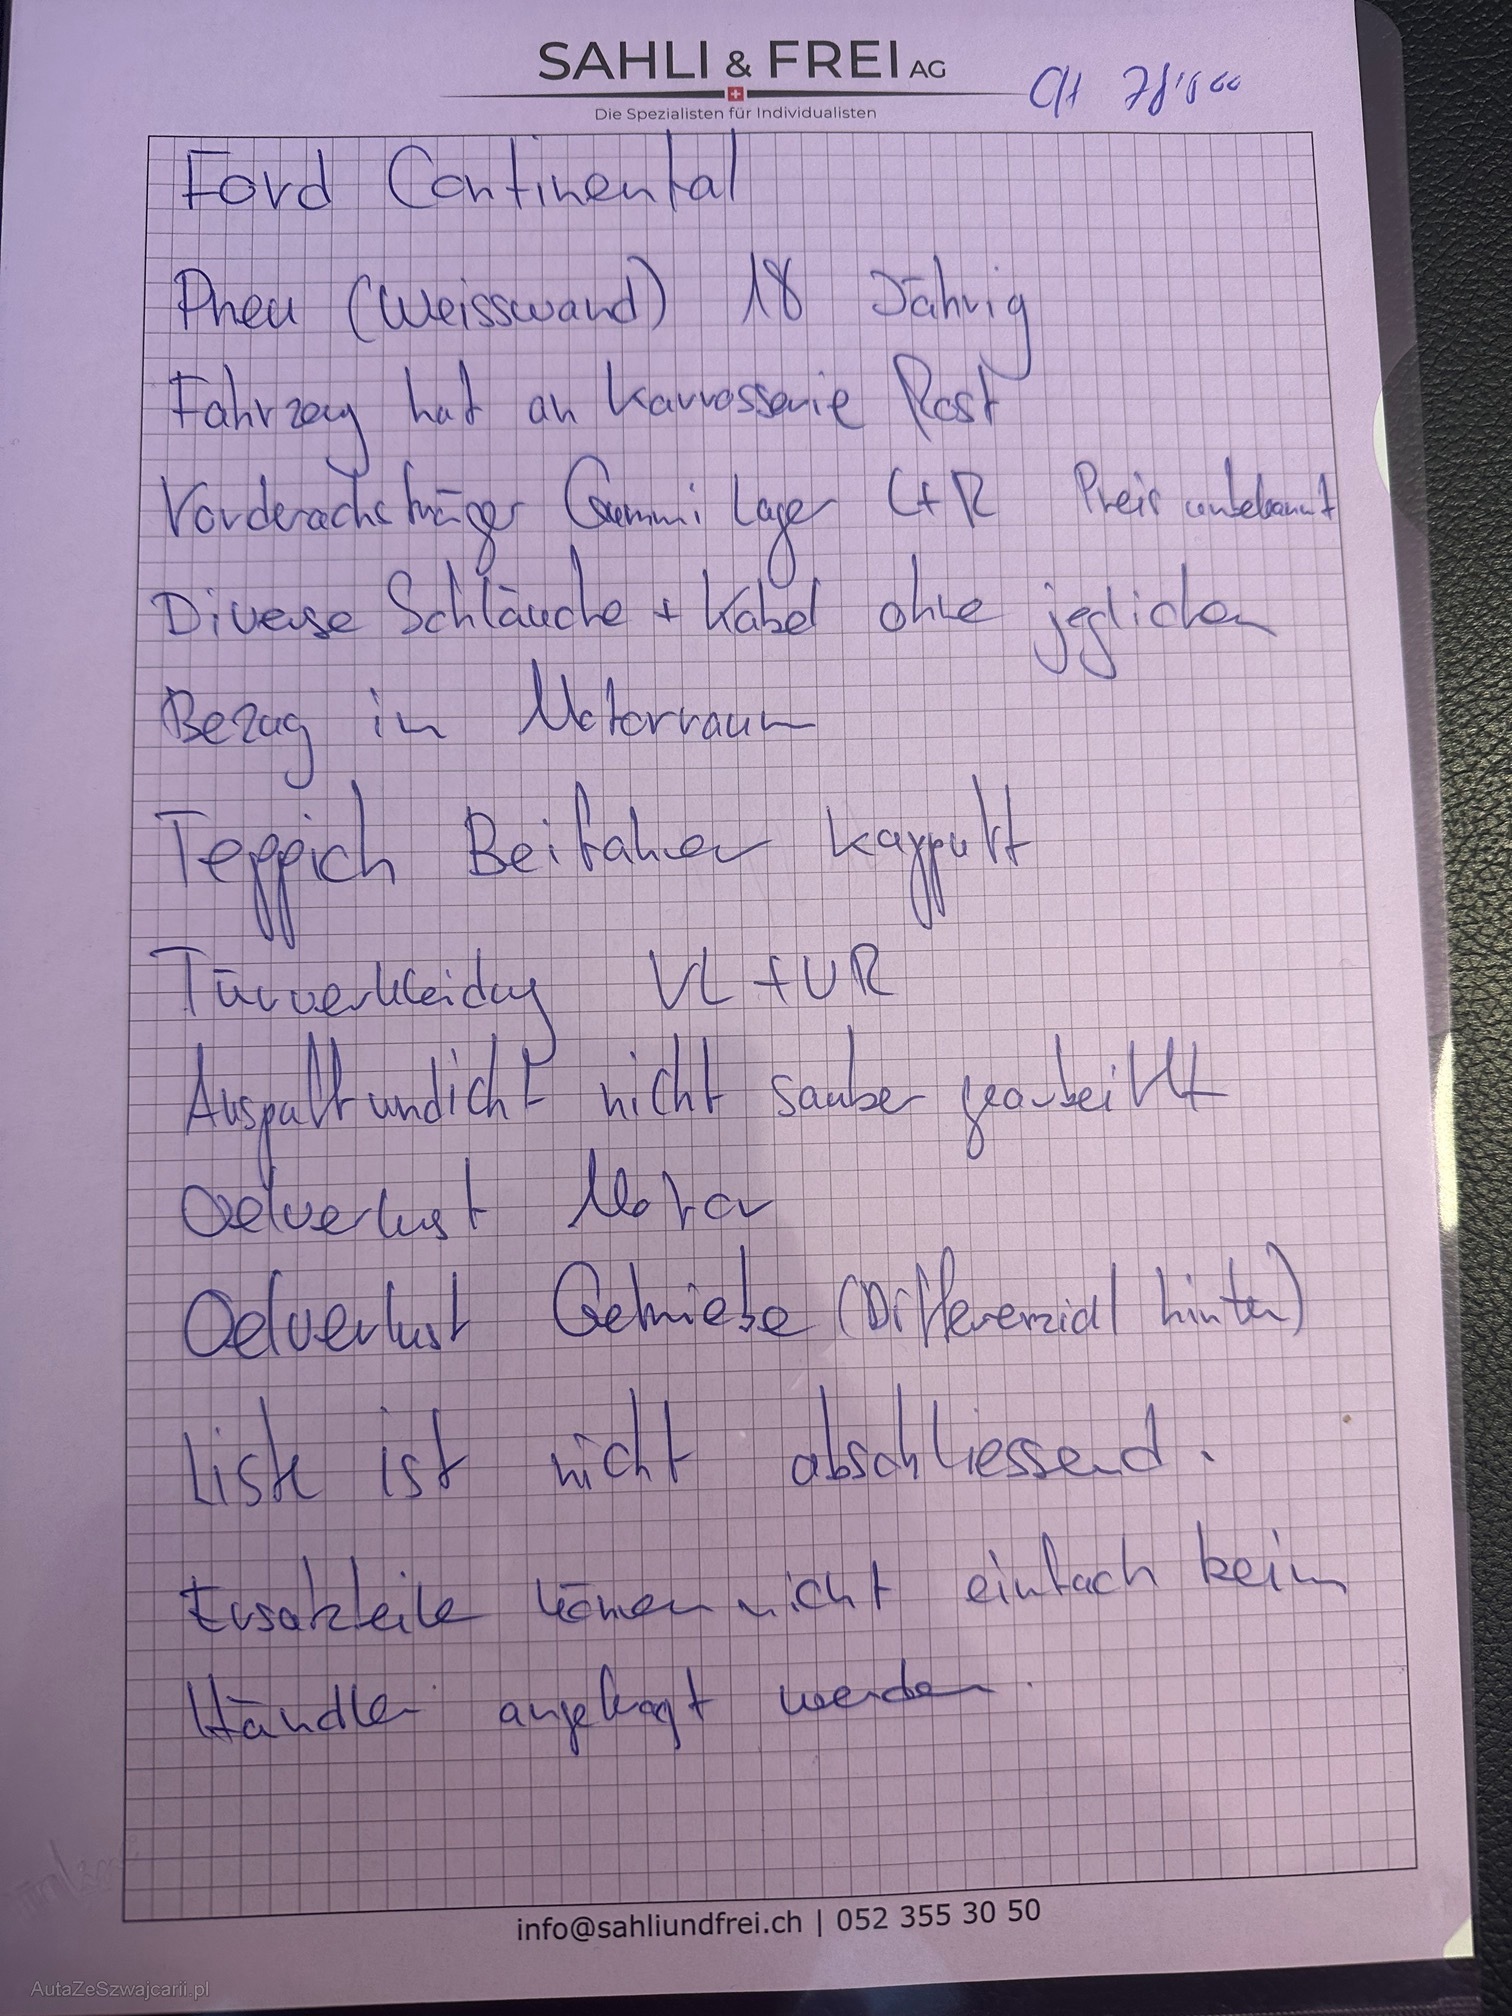 SAHLI & FREI AG
Die Spezialisten für Individualisten
Ford Continental
Pneu (Weisswand) 18 Jährig
Fahrzeug hat an Karrosserie Rost
Vorderachsträger Gummi Lager L+R Preis unbekannt
Diverse Schläuche + Kabel ohne jeglichen
Bezug in Motorraum
Teppich Beifahrer kapputt
Türverkleidug VL + VR
Auspuff undicht nicht sauber gearbeittt
Oelverlust Motor
Oelverlust Getriebe (Differenzial hinten)
Liste ist nicht abschliessend.
Ersatzteile können nicht einfach beim
Händler angefragt werden.
info@sahliundfrei.ch | 052 355 30 50
AutaZeSzwajcarii.pl